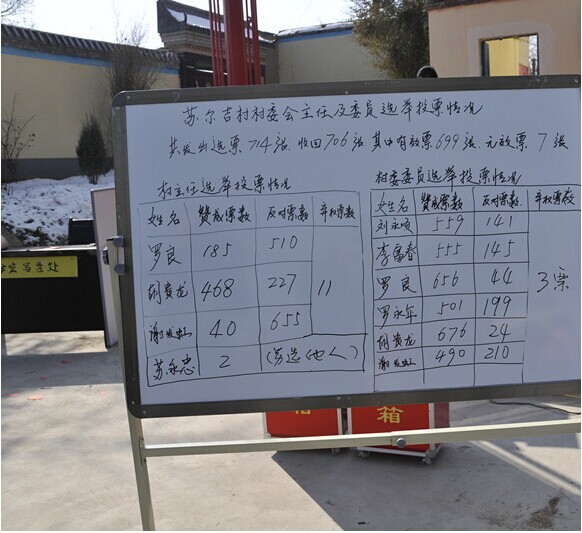 苏尔吉村村委会主任及委员选举投票情况
共发出选票714张 收回706张 其中有效票699张 无效票7张
村主任选举投票情况
姓名 赞成票数 反对票数 弃权票数
罗良 185 510 11
胡贵龙 468 227
谢发虹 40 655
苏永忠 2 (另选他人)
村委委员选举投票情况
姓名 赞成票数 反对票数 弃权票数
刘永顺 559 141 3票
李富春 555 145
罗良 656 44
罗永年 501 199
胡贵龙 676 24
谢发虹 490 210
箱